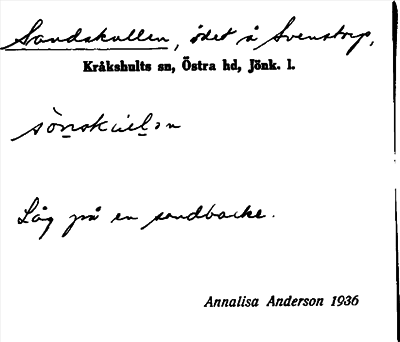 Sandskullen, ödet å Svenstorp,
Kråkshults sn, Östra hd, Jönk. l.
Låg på en sandbacke.
Annalisa Anderson 1936